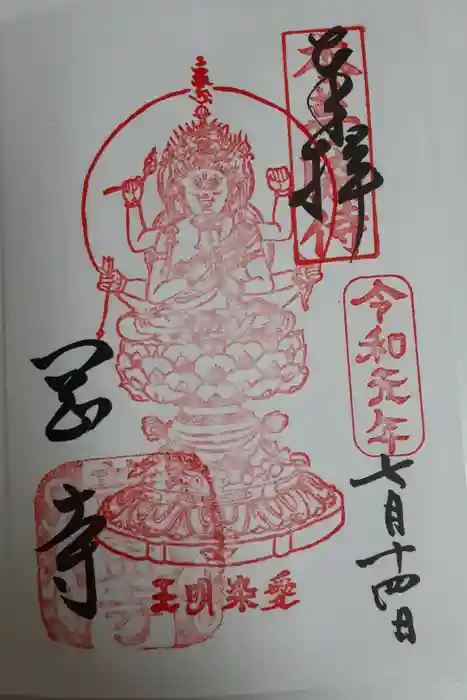 奉拝
令和元年
七月十四日
愛染明王
岡寺